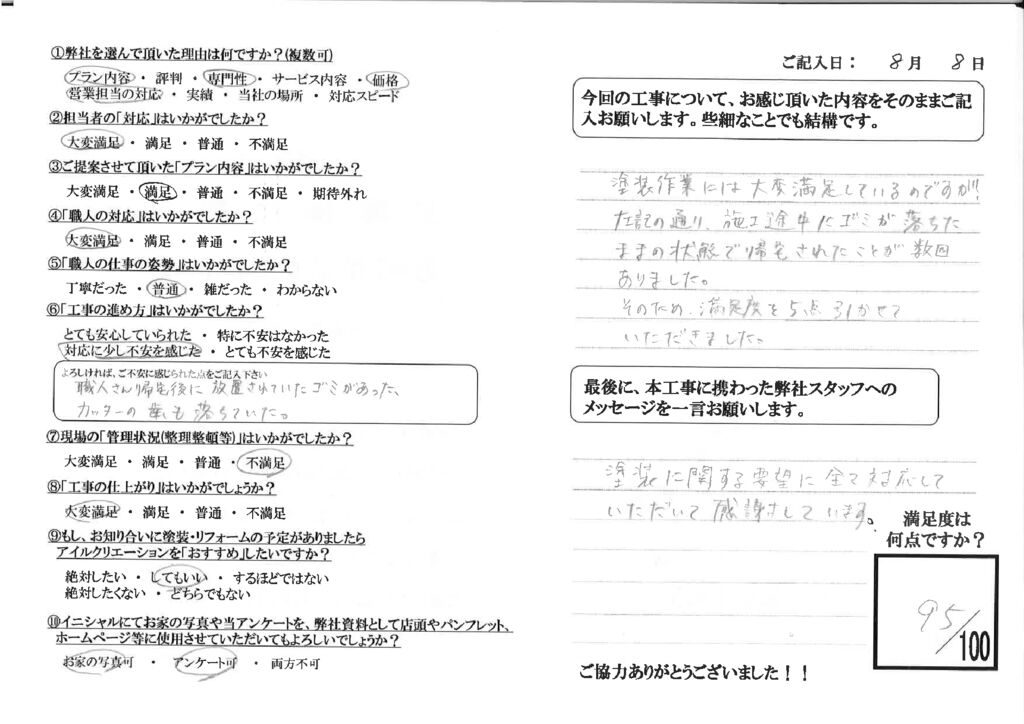 ①弊社を選んで頂いた理由は何ですか?(複数可)
プラン内容 ・ 評判 ・ 専門性 ・ サービス内容 ・ 価格
営業担当の対応 ・ 実績 ・ 当社の場所 ・ 対応スピード
②担当者の「対応」はいかがでしたか?
大変満足 ・ 満足 ・ 普通 ・ 不満足
③ご提案させて頂いた「プラン内容」はいかがでしたか?
大変満足 ・ 満足 ・ 普通 ・ 不満足 ・ 期待外れ
④「職人の対応」はいかがでしたか?
大変満足 ・ 満足 ・ 普通 ・ 不満足
⑤「職人の仕事の姿勢」はいかがでしたか?
丁寧だった ・ 普通 ・ 雑だった ・ わからない
⑥「工事の進め方」はいかがでしたか?
とても安心していられた ・ 特に不安はなかった
対応に少し不安を感じた ・ とても不安を感じた
よろしければ、ご不安に感じられた点をご記入下さい
職人さん帰宅後に放置されていたゴミがあった、
カッターの葉も落ちていた。
⑦現場の「管理状況(整理整頓等)」はいかがでしたか?
大変満足 ・ 満足 ・ 普通 ・ 不満足
⑧「工事の仕上がり」はいかがでしょうか?
大変満足 ・ 満足 ・ 普通 ・ 不満足
⑨もし、お知り合いに塗装・リフォームの予定がありましたら
アイルクリエーションを「おすすめ」したいですか?
絶対したい ・ してもいい ・ するほどではない
絶対したくない ・ どちらでもない
⑩イニシャルにてお家の写真や当アンケートを、弊社資料として店頭やパンフレット、
ホームページ等に使用させていただいてもよろしいでしょうか?
お家の写真可 ・ アンケート可 ・ 両方不可
ご記入日: 8月 8日
今回の工事について、お感じ頂いた内容をそのままご記
入お願いします。些細なことでも結構です。
塗装作業には大変満足しているのですが!
左記の通り、施工途中にゴミが落ちた
ままの状態で帰宅されたことが数回
ありました。
そのため、満足度を5点引かせて
いただきました。
最後に、本工事に携わった弊社スタッフへの
メッセージを一言お願いします。
塗装に関する要望に全て対応して
いただいて感謝しています。
満足度は
何点ですか?
95/100
ご協力ありがとうございました!!